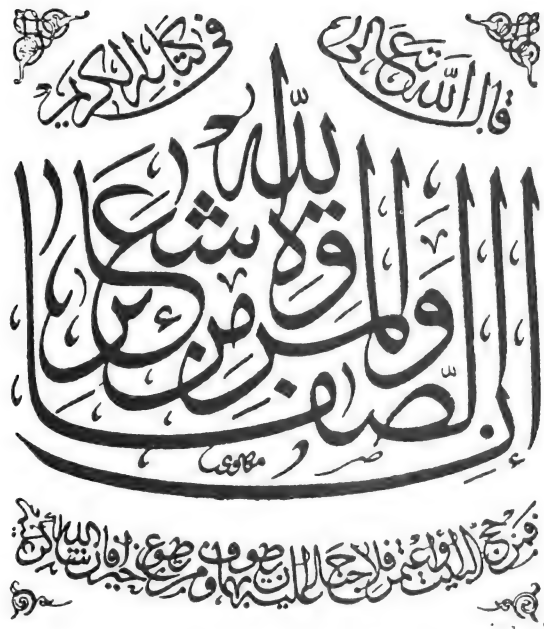 قال الله تعالى
في كتابه الكريم
إن الصفا والمروة من شعائر الله
مكاوي
فمن حج البيت أو اعتمر فلا جناح عليه أن يطوف بهما ومن تطوع خيرا فإن الله شاكر